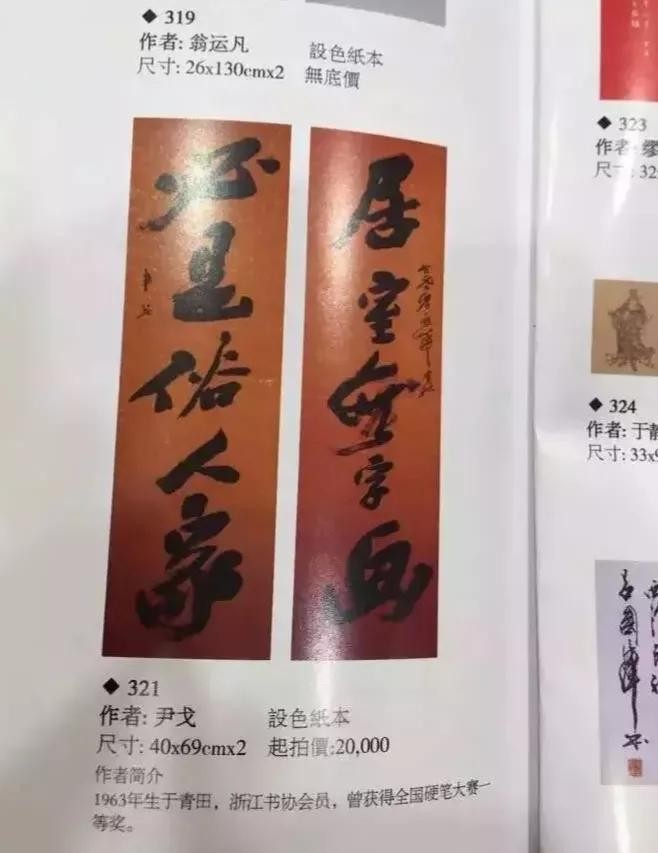 ◆ 319
作者: 翁运凡 設色紙本
尺寸: 26x130cmx2 無底價
居室無字畫
必是俗人家
◆ 321
作者: 尹戈 設色紙本
尺寸: 40x69cmx2 起拍價:20,000
作者简介
1963年生于青田，浙江书协会员，曾获得全国硬笔大赛一
等奖。
◆ 323
作者: 缪
尺寸: 32
◆ 324
作者: 于静
尺寸: 33x9